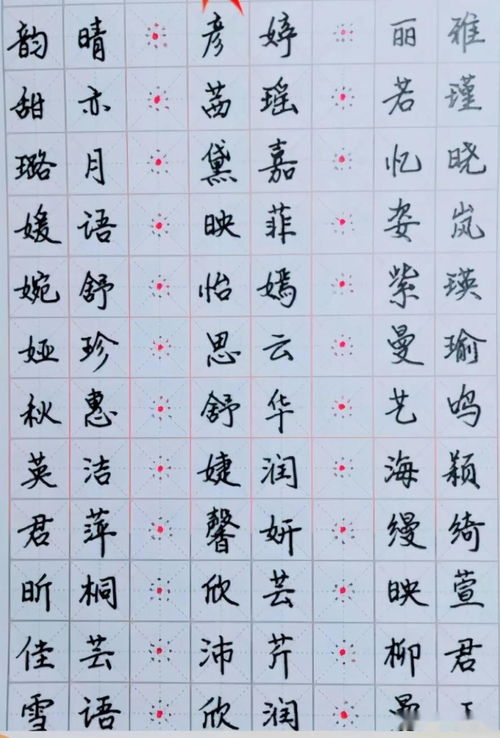 韵晴 彦婷 丽雅
甜亦 茜瑶 若瑾
璐月 黛嘉 忆晓
媛语 映菲 姿岚
婉舒 怡嫣 紫瑛
娅珍 思云 曼瑜
秋惠 舒华 艺鸣
英洁 婕润 海颖
君萍 馨妍 缦绮
昕桐 欣芸 映萱
佳芸 沛芹 柳君
雪语 欣润